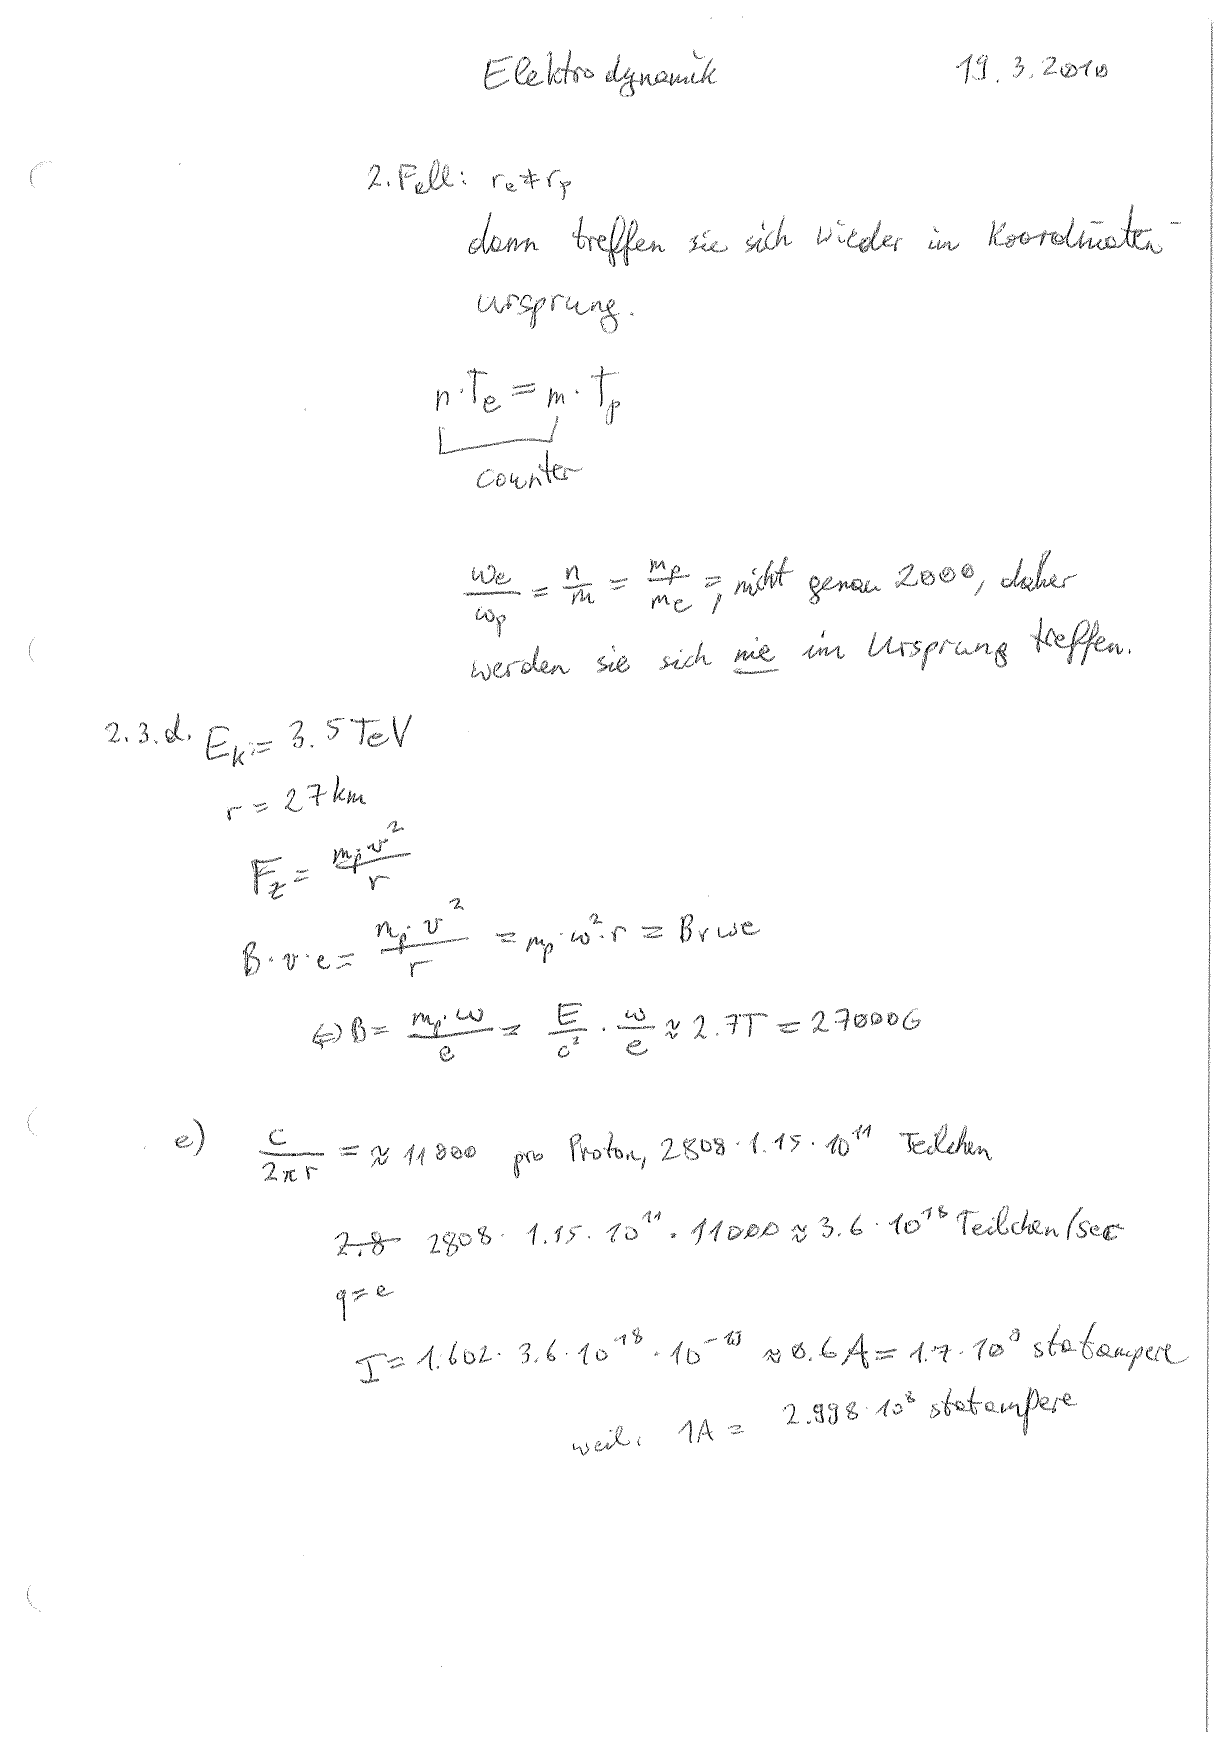 Elektrodynamik 19.3.2010
2. Fall: rₑ ≠ rₚ
dann treffen sie sich wieder in Koordinaten-
ursprung.
n·Tₑ = m·Tₚ
counter
ωₑ/ωₚ = n/m = mₚ/mₑ =, nicht genau 2000, daher
werden sie sich nie im Ursprung treffen.
2.3.d. Eₖ = 3.5 TeV
r = 27 km
F_z = mₚ·v²/r
B·v·e = mₚ·v²/r = mₚ·ω²·r = Brωe
⇔ B = mₚ·ω/e = E/c² · ω/e ≈ 2.7T = 27000G
e) c/2πr = ≈ 11000 pro Proton, 2808·1.15·10¹¹ Teilchen
2.8 2808·1.15·10¹¹·11000 ≈ 3.6·10¹⁸ Teilchen/sec
q = e
I = 1.602·3.6·10¹⁸·10⁻¹⁹ ≈ 0.6 A = 1.7·10⁹ statampere
weil: 1A = 2.998·10⁸ statampere